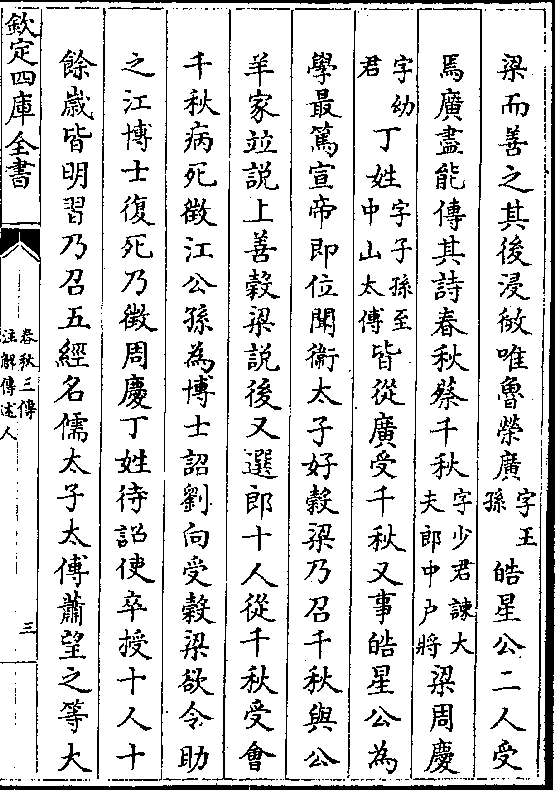 梁而善之其後浸微唯魯榮廣字王孫皓星公二人受
焉廣盡能傳其詩春秋蔡千秋字少君諫大夫郎中户將梁周慶
字幼君丁姓字子孫至中山太傅皆從廣受千秋又事皓星公為
學最篤宣帝即位聞衞太子好穀梁乃召千秋與公
羊家竝説上善穀梁説後又選郎十人從千秋受會
千秋病死徵江公孫為博士詔劉向受穀梁欲令助
之江博士復死乃徵周慶丁姓待詔使卒授十人十
餘歲皆明習乃召五經名儒太子太傅蕭望之等大
欽定四庫全書
春秋三傳
注解傳述人
三